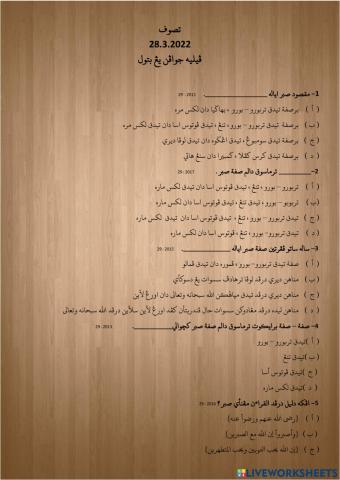 تصوف
28.3.2022
ڤيليه جوابن يڠ بتول
1- مقصود صبر اياله ______________ . 2021 - 29
( أ ) برصفة تيدق تربورو – بورو ، بهاڬيا دان لكس مره
( ب ) برصفة تيدق تربورو – بورو ، تنڠ ، تيدق ڤوتوس اسا دان تيدق لكس مره
( ج ) برصفة تيدق سومبوڠ ، تيدق دان تيدق لوڤا ديري
( د ) برصفة تيدق كرس كڤلا ، ڬمبيرا دان سنڠ هاتي
2- ________ ترماسوق دالم صفة صبر . 2017 - 29
( أ ) تربورو – بورو ، تنڠ ، تيدق ڤوتوس اسا دان تيدق لكس ماره
( ب ) تربورو – بورو ، تيدق تنڠ ، تيدق ڤوتوس اسا دان لكس ماره
( ج ) تيدق تربورو – بورو ، تنڠ ، تيدق ڤوتوس اسا دان تيدق لكس ماره
( د ) تيدق تربورو- بورو ، تنڠ ، ڤوتوس اسا دان لكس ماره
3- ساله ساتو صفة صبر اياله ______________ . 2015 - 29
( أ ) صفة تيدق تربورو- بورو ، دان تيدق
( ب ) مناهن ديري درڤد لوڤا ترهادڤ سسوات يڠ
( ج ) مناهن ديري درڤد تيدق الله سبحانه وتعالى دان اورڠ لاين
( د ) مناهن ليده درڤد مڠادوكن سسوات حال كڤد اورڠ لاين سلاين درڤد الله سبحانه وتعالى
4- صفة – صفة بريكوت ترماسوق دالم صفة صبر كچوالي______________ . 2013 - 29
( أ )تيدق تربورو – بورو
( ب )تيدق تنڠ
( ج )تيدق ڤوتوس أسا
( د )تيدق لكس ماره
5- اڤكه دليل درڤد القرءان صبر ؟ 2016 - 29
( أ ) (رضي الله عنهم ورضوا عنه)
( ب ) (وأصبروا إن الله مع الصبرين)
( ج ) (إن الله يحب التوبين ويحب المتطهرين)
LIVEWORKSHEETS